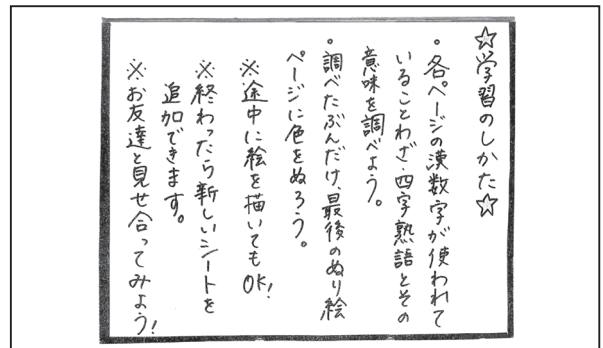 ☆学習のしかた☆
・各ページの漢数字が使われて
いることわざ・四字熟語とその
意味を調べよう。
・調べたぶんだけ、最後のぬり絵
ページに色をぬろう。
※途中に絵を描いてもOK!
※終わったら新しいシートを
追加できます。
※お友達と見せ合ってみよう!